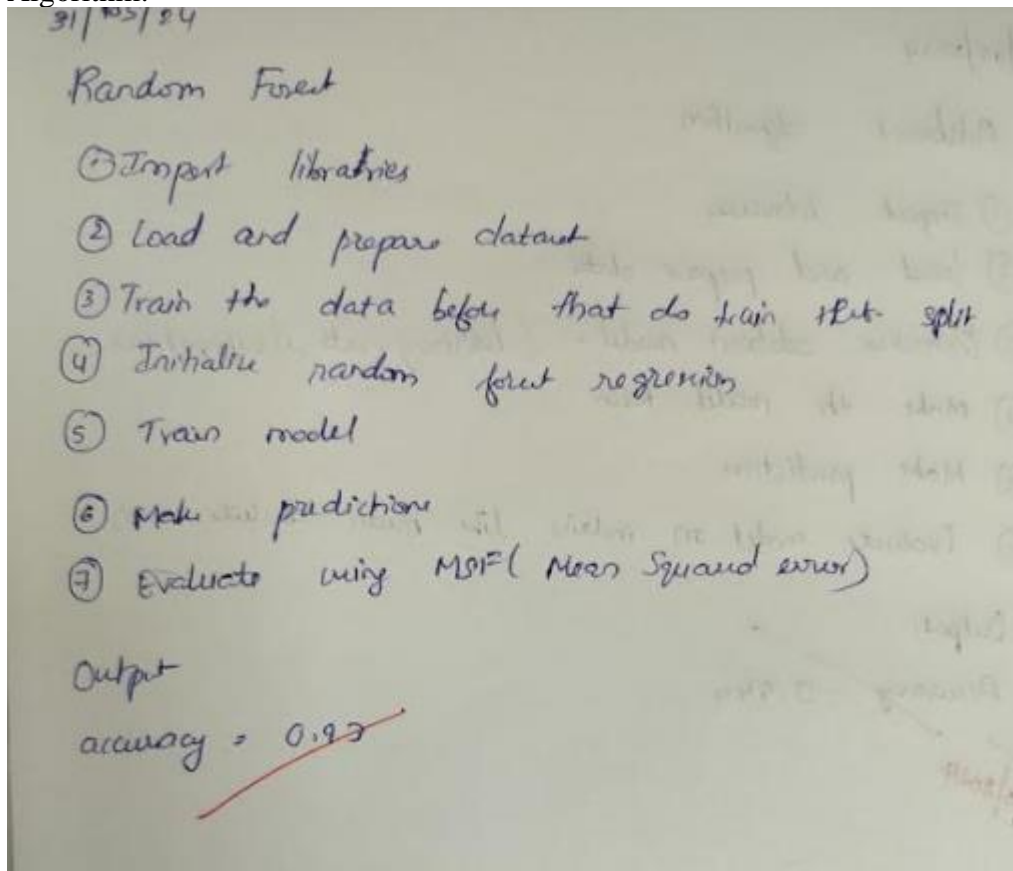 31/05/24
Random Forest
① Import libratries
② Load and prepare dataset
③ Train the data before that do train test split
④ Initialize random forest regression
⑤ Train model
⑥ Make predictions
⑦ Evaluate using MSE (Mean Squared error)
Output
accuracy = 0.93